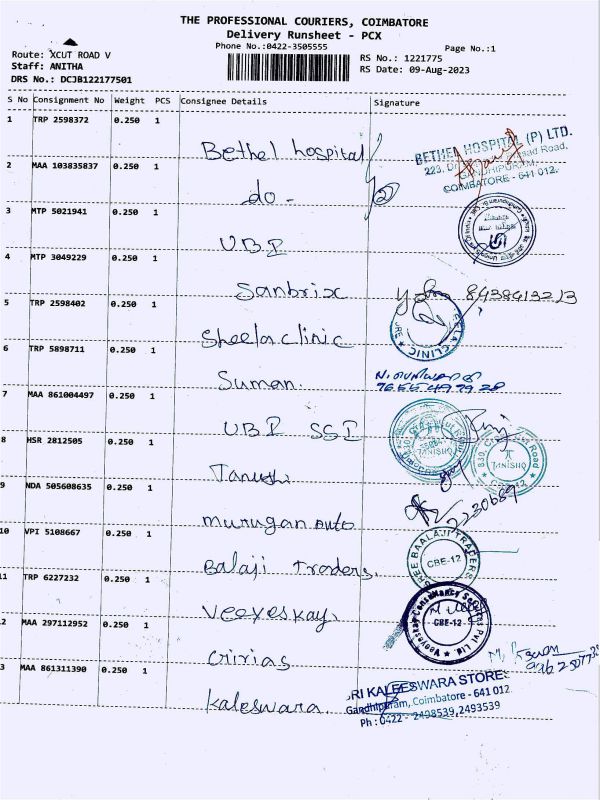 THE PROFESSIONAL COURIERS, COIMBATORE
Delivery Runsheet - PCX
Phone No.:0422-3505555
Page No.:1
Route: XCUT ROAD V
Staff: ANITHA
DRS No.: DCJB122177501
RS No.: 1221775
RS Date: 09-Aug-2023
S No Consignment No Weight PCS Consignee Details Signature
1 TRP 2598372 0.250 1
Bethel hospital
BETHEL HOSPITAL (P) LTD.
GANDHIPURAM,
COIMBATORE - 641 012.
2 MAA 103835837 0.250 1
do -
3 MTP 5021941 0.250 1
UBI
4 MTP 3049229 0.250 1
Sanbrix
5 TRP 2598402 0.250 1
Sheela clinic
6 TRP 5898711 0.250 1
Suman.
7 MAA 861004497 0.250 1
UBI SSI
8 HSR 2812505 0.250 1
Tanushi
TANISHQ
9 NDA 505608635 0.250 1
murugan auto
2230689
10 VPI 5108667 0.250 1
Balaji Traders
SREE BAALAJI TRADERS
CBE-12
11 TRP 6227232 0.250 1
Veeyeskay
Veeyeskay Consultancy Services Pvt Ltd.
CBE-12
2 MAA 297112952 0.250 1
Cririas
3 MAA 861311390 0.250 1
Kaleswara.
RI KALEESWARA STORE
Gandhipuram, Coimbatore - 641 012
Ph : 0422 - 2498539,2493539